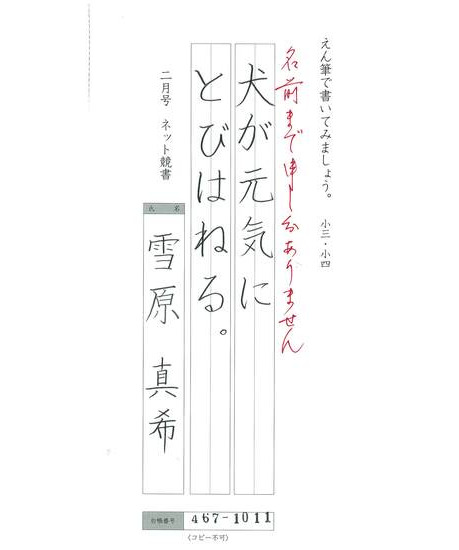 えん筆で書いてみましょう。 小三・小四
名前まで申し分ありません
犬が元気に
とびはねる。
二月号 ネット競書
氏名
雪原 真希
台帳番号 467-1011
(コピー不可)